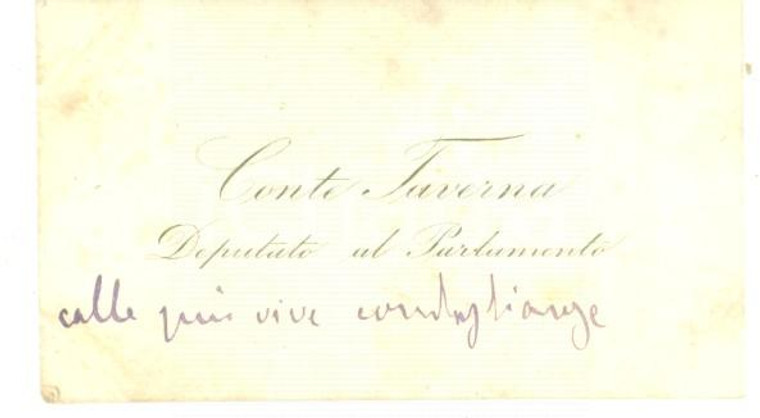 Conte Taverna
Deputato al Parlamento
colle più vive condoglianze